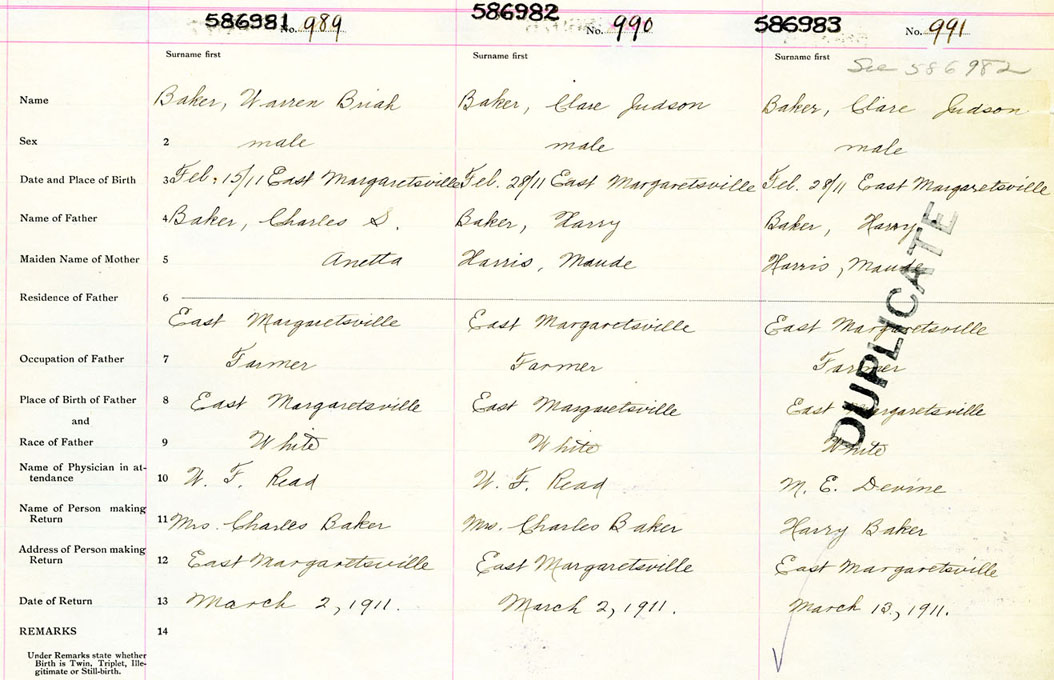 586981 No. 989 586982 No. 990 586983 No. 991
Surname first Surname first Surname first See 586982
Name Baker, Warren Briah Baker, Clare Judson Baker, Clare Judson
Sex 2 male male male
Date and Place of Birth 3 Feb. 15/11 East Margaretsville Feb. 28/11 East Margaretsville Feb. 28/11 East Margaretsville
Name of Father 4 Baker, Charles S. Baker, Harry Baker, Harry
Maiden Name of Mother 5 Anetta Harris, Maude Harris, Maude
Residence of Father 6
East Margaretsville East Margaretsville East Margaretsville
Occupation of Father 7 Farmer Farmer Farmer
DUPLICATE
Place of Birth of Father 8 East Margaretsville East Margaretsville East Margaretsville
and
Race of Father 9 White White White
Name of Physician in at-
tendance 10 W. F. Read W. F. Read M. E. Devine
Name of Person making
Return 11 Mrs. Charles Baker Mrs. Charles Baker Harry Baker
Address of Person making
Return 12 East Margarettsville East Margaretsville East Margaretsville
Date of Return 13 March 2, 1911. March 2, 1911. March 13, 1911.
REMARKS 14
Under Remarks state whether
Birth is Twin, Triplet, Ille-
gitimate or Still-birth.